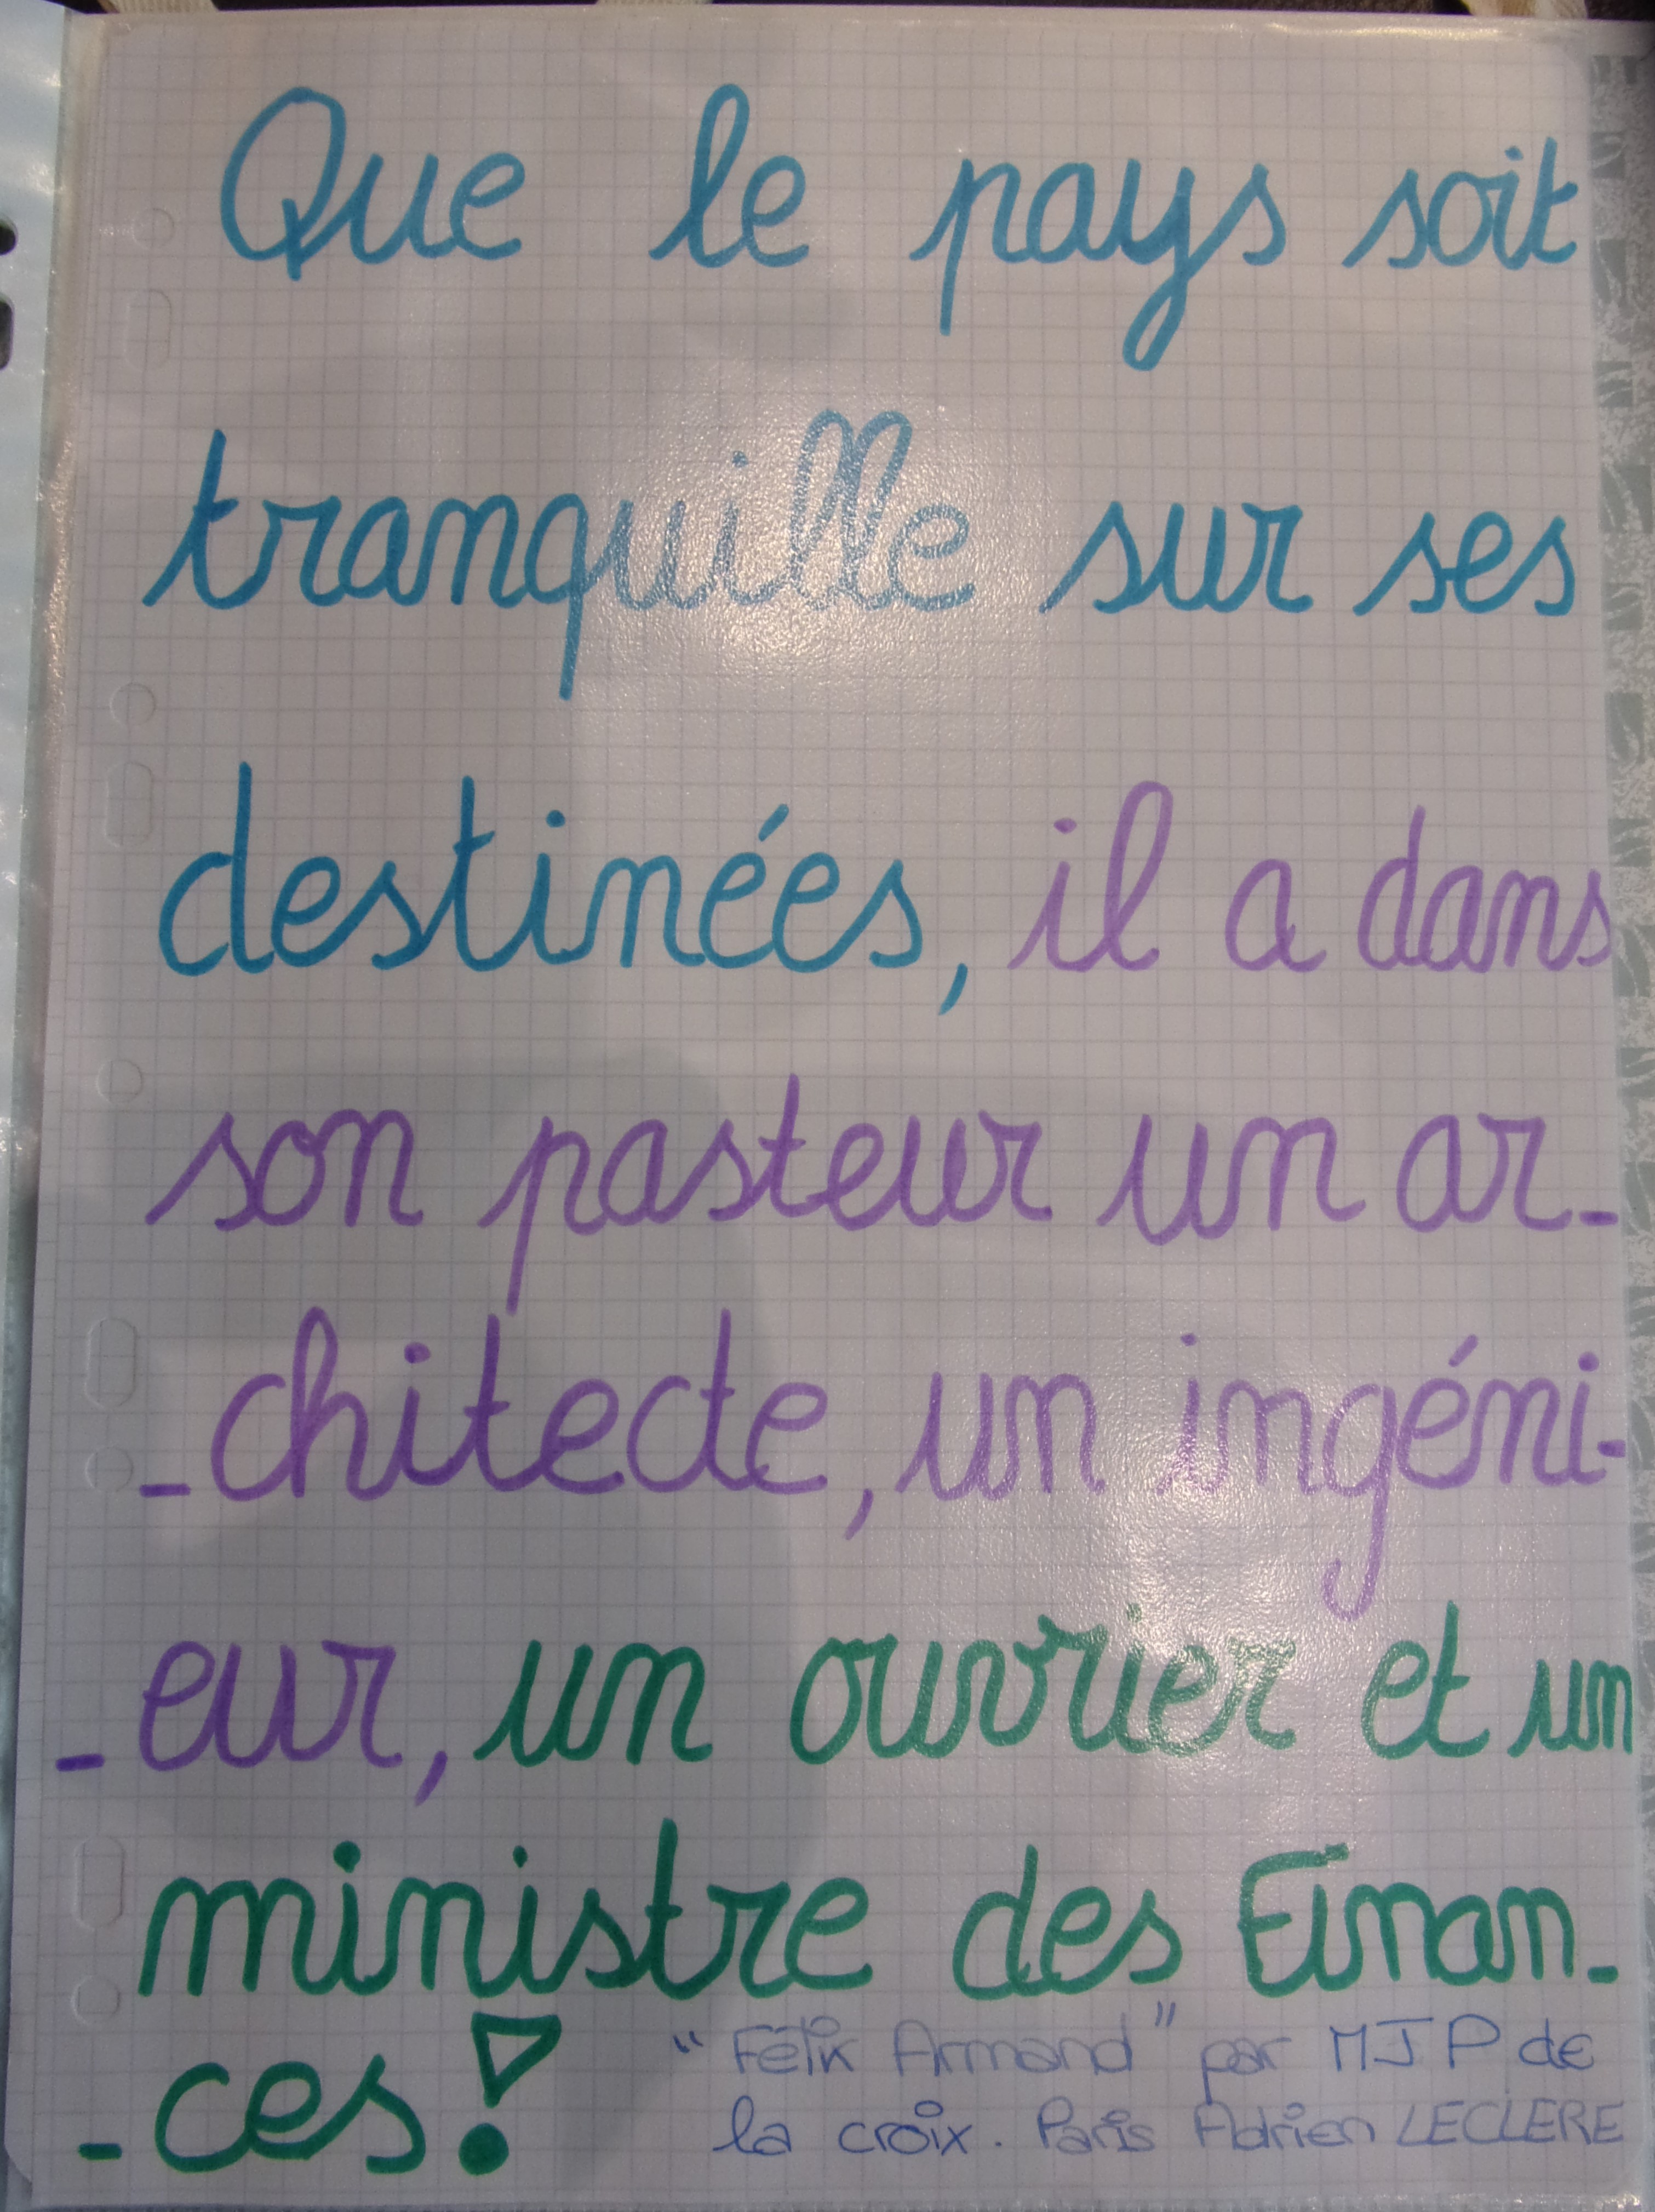 Que le pays soit
tranquille sur ses
destinées, il a dans
son pasteur un ar-
-chitecte, un ingéni-
-eur, un ouvrier et un
ministre des Finan-
-ces!
"Félix Armand" par MJP de
la croix. Paris Adrien LECLERE